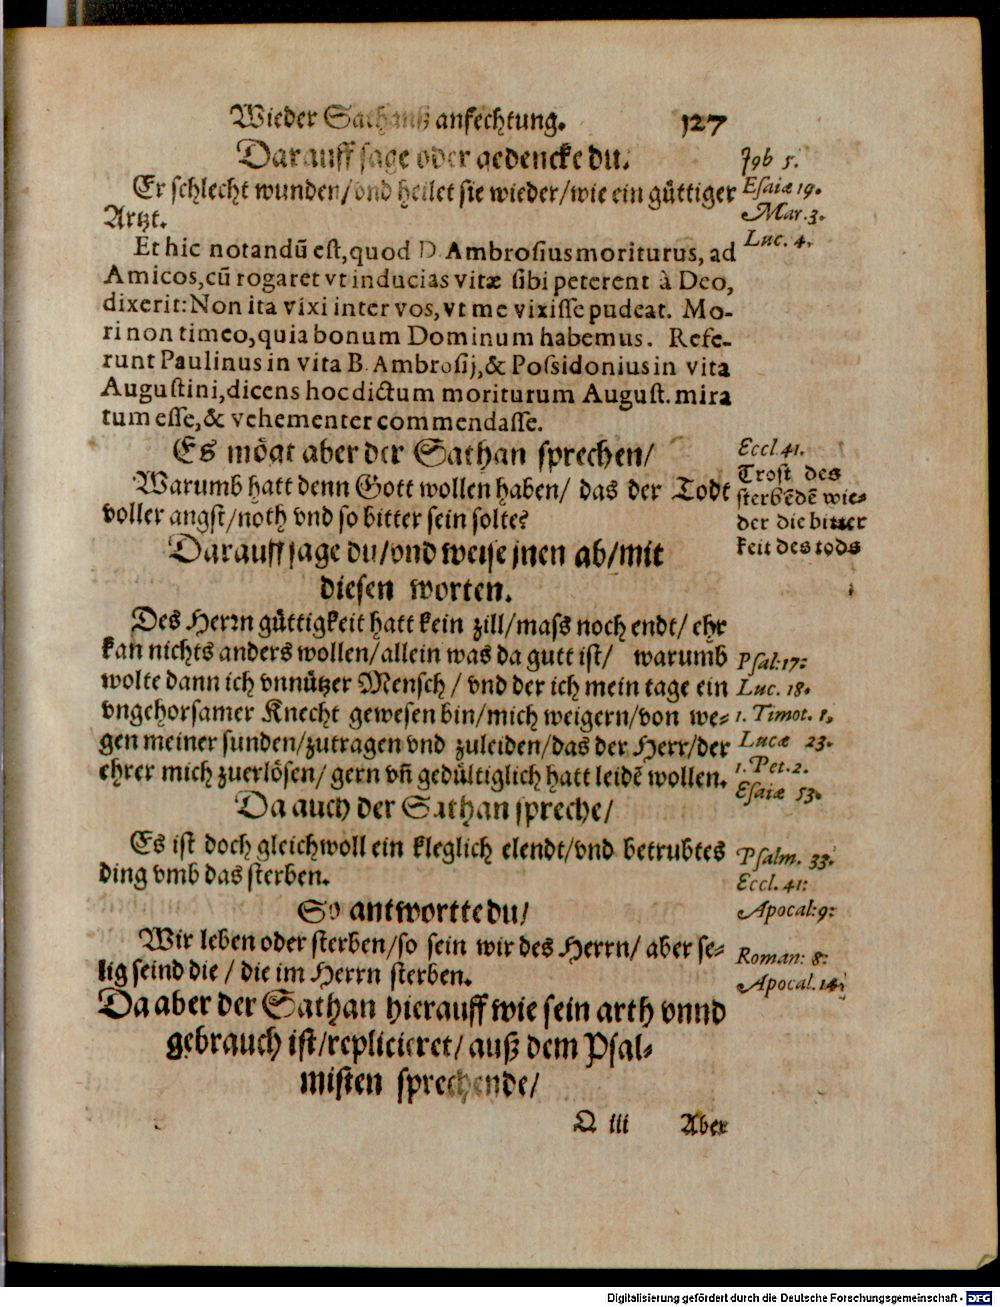 Wieder Sathanß anfechtung. 127
Darauff sage oder gedencke du.
Job 5.
Er schlecht wunden/vnd heilet sie wieder/wie ein güttiger
Esaiæ 19.
Artzt.
Mar. 3.
Luc. 4.
Et hic notandũ est, quod D. Ambrosius moriturus, ad
Amicos, cũ rogaret vt inducias vitæ sibi peterent à Deo,
dixerit: Non ita vixi inter vos, vt me vixisse pudeat. Mo-
ri non timeo, quia bonum Dominum habemus. Refe-
runt Paulinus in vita B. Ambrosij, & Possidonius in vita
Augustini, dicens hoc dictum moriturum August. mira
tum esse, & vehementer commendasse.
Es mögt aber der Sathan sprechen/
Eccl 41.
Trost des
sterbẽdẽ wie-
der die bitter
keit des tods
Warumb hatt denn Gott wollen haben/ das der Todt
voller angst/noth vnd so bitter sein solte?
Darauff sage du/vnd weise jnen ab/mit
diesen worten.
Des Herrn güttigkeit hatt kein zill/mass noch endt/ ehr
kan nichts anders wollen/allein was da gutt ist/ warumb
Psal: 17:
wolte dann ich vnnützer Mensch / vnd der ich mein tage ein
Luc. 18.
vngehorsamer Knecht gewesen bin/mich weigern/von we-
1. Timot. 1,
gen meiner sunden/zutragen vnd zuleiden/das der Herr/der
Lucæ 23.
ehrer mich zuerlösen/ gern vñ gedültiglich hatt leidẽ wollen.
1. Pet. 2.
Esaiæ 53.
Da auch der Sathan spreche/
Es ist doch gleichwoll ein kleglich elendt/vnd betrubtes
Psalm. 33.
ding vmb das sterben.
Eccl. 41:
So antwortte du/
Apocal: 9:
Wir leben oder sterben/so sein wir des Herrn/ aber se-
Roman: 8:
lig seind die / die im Herrn sterben.
Apocal. 14:
Da aber der Sathan hierauff wie sein arth vnnd
gebrauch ist/replicieret/ auß dem Psal-
misten sprechende/
Q iii Aber
Digitalisierung gefördert durch die Deutsche Forschungsgemeinschaft - DFG